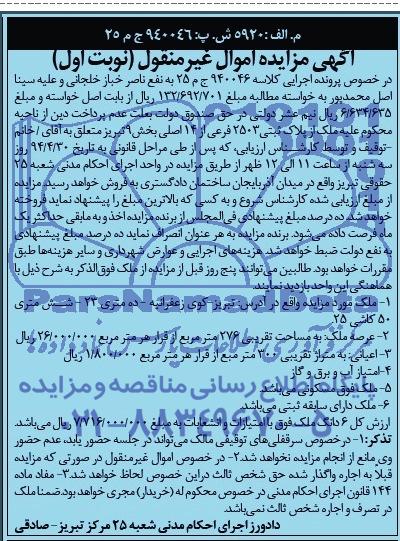 م. الف: ۵۹۲۰ ش. پ: ۹۴۰۰۴۶ ج م ۲۵
آگهی مزایده اموال غیرمنقول (نوبت اول)
در خصوص پرونده اجرایی کلاسه ۹۴۰۰۴۶ ج م ۲۵ به نفع ناصر خباز خلجانی و علیه سینا
اصل محمدپور به خواسته مطالبه مبلغ ۱۳۲/۶۹۲/۷۰۱ ریال از بابت اصل خواسته و مبلغ
۶/۶۳۴/۶۳۵ ریال نیم عشر دولتی در حق صندوق دولت بعلت عدم پرداخت دین از ناحیه
محکوم علیه ملک از پلاک ثبتی ۲۵۰۳ فرعی از ۱۴ اصلی بخش ۹ تبریز متعلق به آقای / خانم
-توقیف و توسط کارشناس ارزیابی، که پس از طی مراحل قانونی به تاریخ ۹۴/۴/۳۰ روز
سه شنبه از ساعت ۱۱ الی ۱۲ ظهر از طریق مزایده در واحد اجرای احکام مدنی شعبه ۲۵
حقوقی تبریز واقع در میدان آذربایجان ساختمان دادگستری به فروش خواهد رسید مزایده
از مبلغ ارزیابی شده کارشناس شروع و به کسی که بالاترین مبلغ را پیشنهاد نماید فروخته
خواهد شد. ده درصد مبلغ پیشنهادی فی‌المجلس از برنده مزایده اخذ و به مابقی حداکثر یک
ماه فرصت داده می‌شود. برنده مزایده به هر عنوان انصراف نماید ده درصد مبلغ پیشنهادی
به نفع دولت ضبط خواهد شد. هزینه‌های اجرایی و عوارض شهرداری و سایر هزینه‌ها طبق
مقررات خواهد بود. طالبین می‌توانند پنج روز قبل از مزایده از ملک فوق‌الذکر به شرح ذیل با
هماهنگی این واحد بازدید نمایند.
۱- ملک مورد مزایده واقع در آدرس: تبریز-کوی زعفرانیه - ده متری ۲۳ - شش متری
۵۰ کاشی ۲۵
۲- عرصه ملک: به مساحت تقریبی ۲۷۶ متر مربع از قرار هر متر مربع ۲۶/۰۰۰/۰۰۰ ریال
۳- اعیانی: به متراژ تقریبی ۳۰۰ متر مربع از قرار هر متر مربع ۱/۸۰۰/۰۰۰ ریال
۴- امتیاز آب و برق و گاز
۵- ملک فوق مسکونی می‌باشد.
۶- ملک دارای سابقه ثبتی می‌باشد.
ارزش کل ۶ دانگ ملک فوق با امتیازات و انشعابات به مبلغ ۷/۷۱۶/۰۰۰/۰۰۰ ریال می‌باشد.
تذکر: ۱- در خصوص سرقفلی‌های توقیفی مالک می‌تواند در جلسه حضور یابد، عدم حضور
وی مانع از انجام مزایده نخواهد شد. ۲- در خصوص اموال غیرمنقول در صورتی که مزایده
قبلا به اجاره واگذار شده حق شخص ثالث دراین خصوص لحاظ خواهد شد. ۳- مفاد ماده
۱۴۴ قانون اجرای احکام مدنی در خصوص محکوم له (خریدار) مجری خواهد بود. ضمنا ملک
در تصرف و اجاره شخص ثالث نمی‌باشد.
دادورز اجرای احکام مدنی شعبه ۲۵ مرکز تبریز - صادقی
پایگاه اطلاع رسانی مناقصه و مزایده